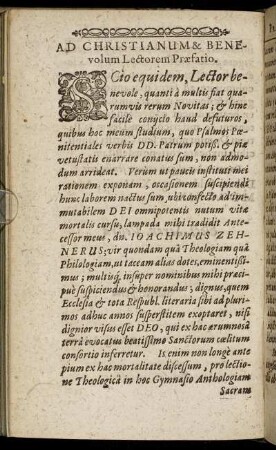 AD CHRISTIANUM & BENE-
volum Lectorem Præfatio.
SCio equidem, Lector be-
nevole, quanti à multis fiat qua-
rumvis rerum Novitas; & hinc
facile conjicio haud defuturos,
quibus hoc meum studium, quo Psalmos Pœ-
nitentiales verbis DD. Patrum potiß. & piæ
vetustatis enarrare conatus sum, non admo-
dum arrideat. Verum ut paucis instituti mei
rationem exponam, occasionem suscipiendi
hunc laborem nactus sum, ubi confecto ad im-
mutabilem DEI omnipotentis nutum vitæ
mortalis cursu, lampada mihi tradidit Ante-
cessor meus, dn. IOACHIMUS ZEH-
NERUS; vir quondam quà Theologiam quà
Philologiam, ut taceam alias dotes, eminentißi-
mus; multisq́; insuper nominibus mihi præci-
puè suspiciendus & honorandus; dignus, quem
Ecclesia & tota Respubl. literaria sibi ad pluri-
mos adhuc annos superstitem exoptaret, nisi
dignior visus esset DEO, qui ex hac ærumnosâ
terrâ evocatus beatissimo Sanctorum cœlitum
consortio inferretur. Is enim non longè ante
pium ex hac mortalitate discessum, pro lectio-
ne Theologicâ in hoc Gymnasio Anthologiam
Sacram